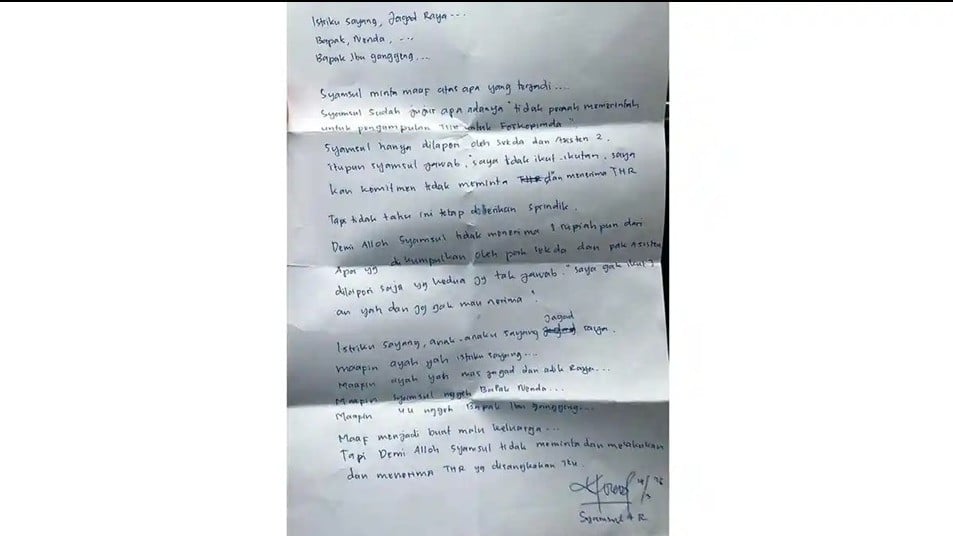 Istriku sayang, Jagad Raya...
Bapak, Nenda, ...
Bapak Ibu ganggeng...
Syamsul minta maaf atas apa yang terjadi....
Syamsul sudah jujur apa adanya "tidak pernah memerintah
untuk pengumpulan THR untuk Forkopimda"
Syamsul hanya dilapori oleh Sekda dan Asisten 2.
itupun Syamsul jawab, "saya tidak ikut-ikutan, saya
kan komitmen tidak meminta dan menerima THR
Tapi tidak tahu ini tetap diberikan sprindik.
Demi Alloh Syamsul tidak menerima 1 rupiah pun dari
Apa yg dikumpulkan oleh pak sekda dan pak Asisten
dilapori saja yg kedua yg tak jawab. "saya gak ikut 2
an yah dan jg gak mau nerima".
Istriku sayang, anak-anaku sayang Jagad raya.
maapin ayah yah istriku sayang...
Maapin ayah yah mas jagad dan adik Raya...
Maapin Syamsul nggeh Bapak Nenda...
Maapin nggeh Bapak Ibu ganggeng...
Maaf menjadi buat malu keluarga...
Tapi Demi Alloh Syamsul tidak meminta dan melakukan
dan menerima THR yg disangkakan itu.
Syamsul A R